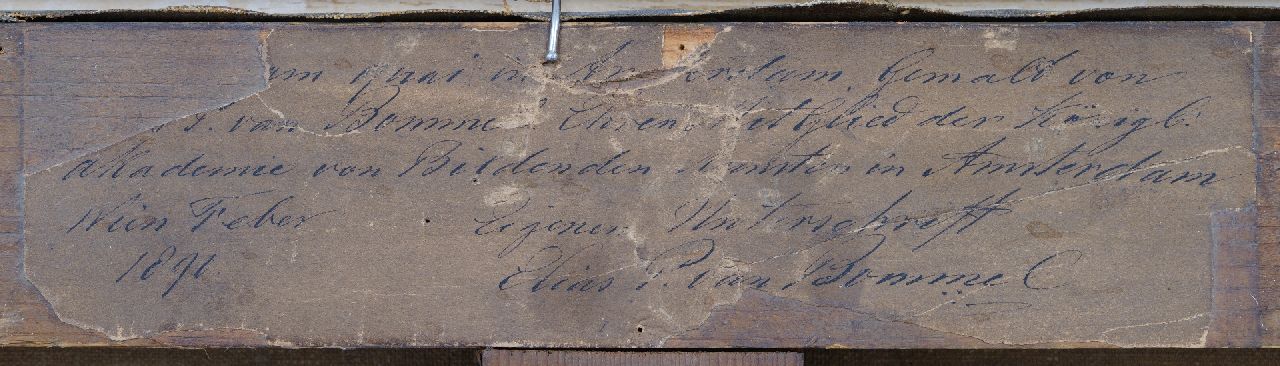 am quai in Amsterdam Gemald von
P. van Bommel Ehren Mitglied der Königl:
Akademie von Bildenden Kunsten in Amsterdam
Wien Feber Eigener Unterschrifft
1871 Elias P. van Bommel